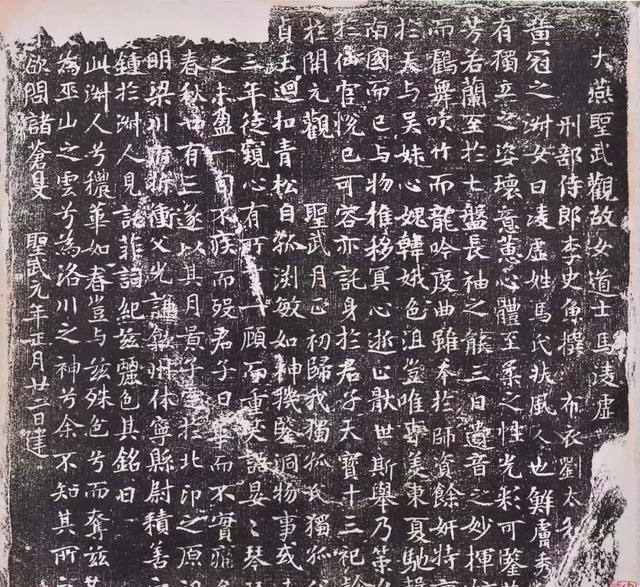 大燕聖武觀故女道士馬凌虛
刑部侍郎李史魚撰 布衣劉太和
黃冠之淑女曰凌虛姓馬氏扶風人也鮮膚秀
有獨立之姿瓌意蕙心體至柔之性光彩可鑒
芳若蘭至於七盤長袖之能三日遺音之妙揮
而鶴舞吹竹而龍吟度曲雖本於師資餘妍特
於天与吳妹心愧韓娥色沮豈唯專美東夏馳
南國而已与物推移冥心逝止厭世斯舉乃策
於仙官悅已可容亦託身於君子天寶十三祀
於開元觀 聖武月正初歸我獨孤氏獨孤
貞玉迴扣青松自孤淵敏如神機鑒洞物事或
三年徒窺心有可一顧而重笑語晏〻琴
之未盈一旬不疾而殁君子曰華而不實痛
春秋廿有三遂以其月景子窆於北邙之原
明梁川府折衝父光謙歙州休寧縣尉積善
鍾於淑人見託菲詞紀兹麗色其銘曰
此淑人兮穠華如春豈与兹殊色兮而奪兹
為巫山之雲兮為洛川之神兮余不知其所
欲問諸蒼旻 聖武元年正月廿二日建